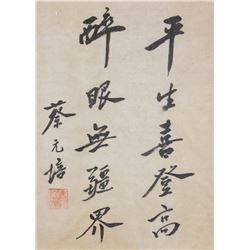 平生喜登高
醉眼無疆界
蔡元培